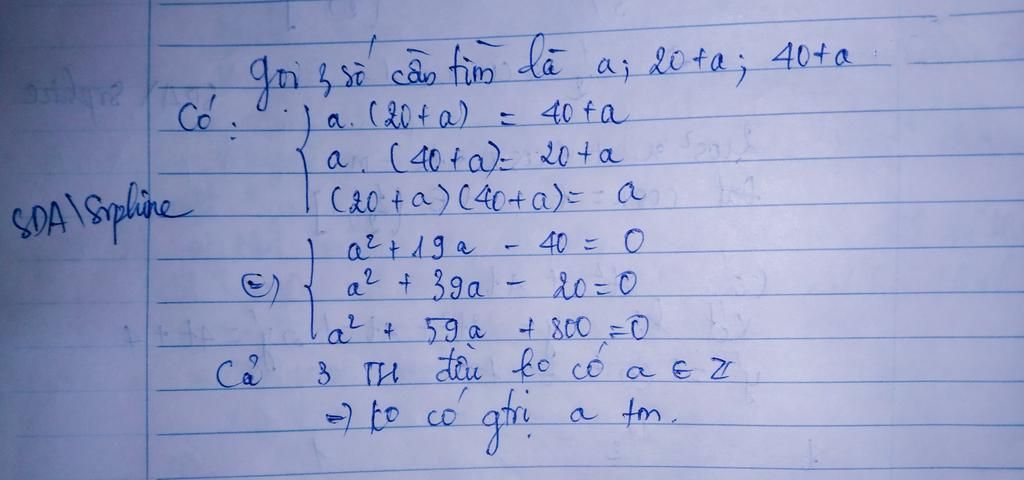 Gọi 3 số cần tìm là a; 20+a; 40+a
Có: a. (20+a) = 40+a
a. (40+a) = 20+a
(20+a)(40+a) = a
SDA\Srphine
⇔ a² + 19a - 40 = 0
a² + 39a - 20 = 0
a² + 59a + 800 = 0
Cả 3 TH đều ko có a ∈ Z
=) ko có gtrị a tm.